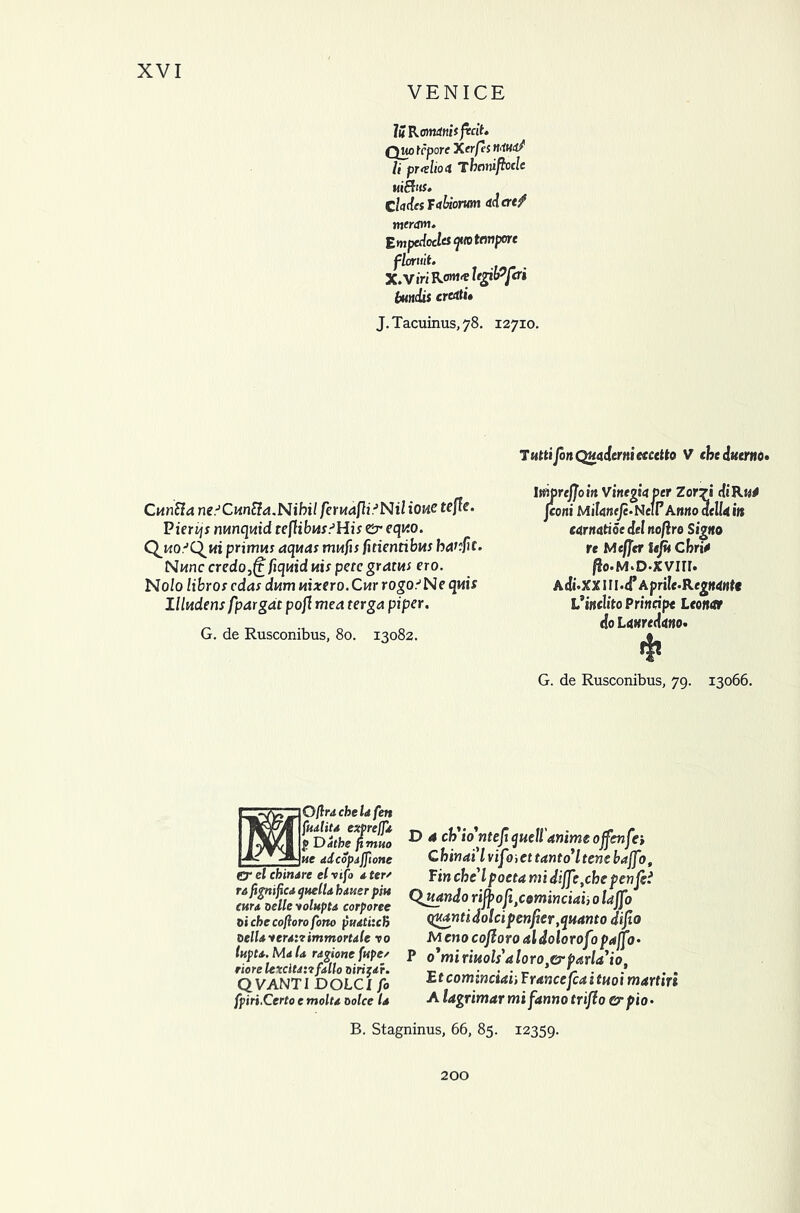 XVI
VENICE
lū Romanis fecit.
Quo tēpore Xerſes naua/
li prælio a Themiſtocle
uictus.
Clades Fabiorum ad cre/
meram.
Empedocles quo tempore
floruit.
X. Viri Romæ legibꝰ ſcri
bundis creati.
J. Tacuinus, 78. 12710.
Tutti ſon Quaderni eccetto V che duerno.
Impreſſo in Vinegia per Zorzi di Ru/
ſconi Milaneſe. Nell' Anno della in
carnatiōe del noſtro Signo
re Meſſer Ieſu Chri/
ſto. M.D.XVIII.
Adi. XXIII. d' Aprile. Regnante
L'inclito Principe Leonar
do Lauredano.
G. de Rusconibus, 79. 13066.
Cuncta ne? Cuncta. Nihil ſeruaſti? Nil ioue teſte.
Pierijs nunquid teſtibus? His & equo.
Quo? Qui primus aquas muſis ſitientibus hauſit.
Nunc credo, & ſiquid uis pete gratus ero.
Nolo libros edas dum uixero. Cur rogo? Ne quis
Illudens ſpargat poſt mea terga piper.
G. de Rusconibus, 80. 13082.
MOſtra che la ſen
ſualita expreſſa
p Dāthe ſi muo
ue ad cōpaſſione
& el chinare el viſo a ter/
ra ſignifica quella hauer piu
cura delle volupta corporee
di che coſtoro ſono puati: ch
della vera: & immortale vo
lupta. Ma la ragione ſupe/
riore lexcita: & fallo dirizar.
QVANTI DOLCI ſo
ſpiri. Certo e molta dolce la
D a ch'io 'nteſi quell'anime offenſe;
Chinai'l viſo; et tanto'l tene baſſo,
Fin che'l poeta mi diſſe, che penſe?
Quando riſpoſi, cominciai; o laſſo
quanti dolci penſier, quanto diſio
Meno coſtoro al doloroſo paſſo.
P o' mi riuolſ'a loro, & parla'io,
Et cominciai; Franceſca i tuoi martiri
A lagrimar mi fanno triſto & pio.
B. Stagninus, 66, 85. 12359.
200